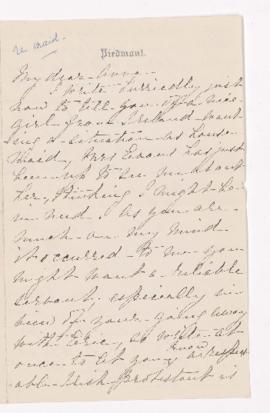 re maid.
Piedmont.
My dear Anna -
I write hurriedly just
now to tell you of a nice
girl from Ireland want-
ing a situation as house
maid, Mrs Evans has just
been in to see me about
her, thinking I might be
in need. As you are
much on my mind
it occurred to me you
might want a reliable
servant, especially in
view of your going away
with Eric, so write at
once to let you know a respect
able Irish Protestant is